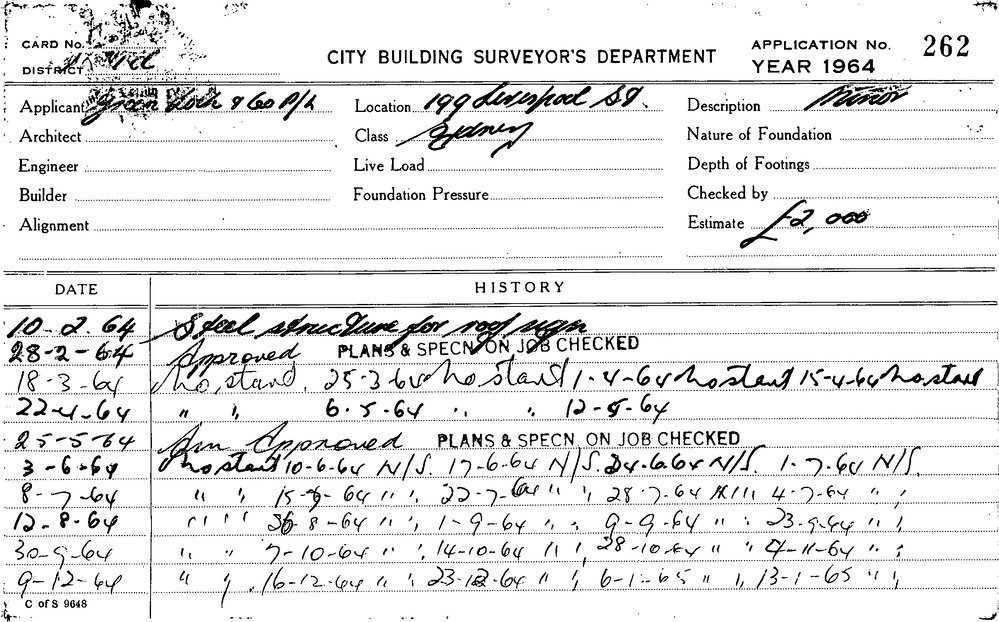 CARD No.
DISTRICT
CITY BUILDING SURVEYOR'S DEPARTMENT
APPLICATION No. 262
YEAR 1964
Applicant Green & Co P/L
Location 199 Liverpool St.
Description Minor
Architect
Class Sydney
Nature of Foundation
Engineer
Live Load
Depth of Footings
Builder
Foundation Pressure
Checked by
Alignment
Estimate £2,000
DATE HISTORY
10-2-64 Steel structure for roof sign
28-2-64 Approved PLANS & SPECN ON JOB CHECKED
18-3-64 No start. 25-3-64 No start 1-4-64 No start 15-4-64 No start
22-4-64 " " 6-5-64 " " 12-5-64
25-5-64 Am Approved PLANS & SPECN. ON JOB CHECKED
3-6-64 No start 10-6-64 N/S. 17-6-64 N/S. 24-6-64 N/S. 1-7-64 N/S.
8-7-64 " " 15- -64 " " 22-7-64 " " 28-7-64 4-7-64 " "
12-8-64 " " 26-8-64 " " 1-9-64 " " 9-9-64 " " 23-9-64 " "
30-9-64 " " 7-10-64 " " 14-10-64 " " 28-10-64 " " 4-11-64 " "
9-12-64 " " 16-12-64 " " 23-12-64 " " 6-1-65 " " 13-1-65 " "
C of S 9648